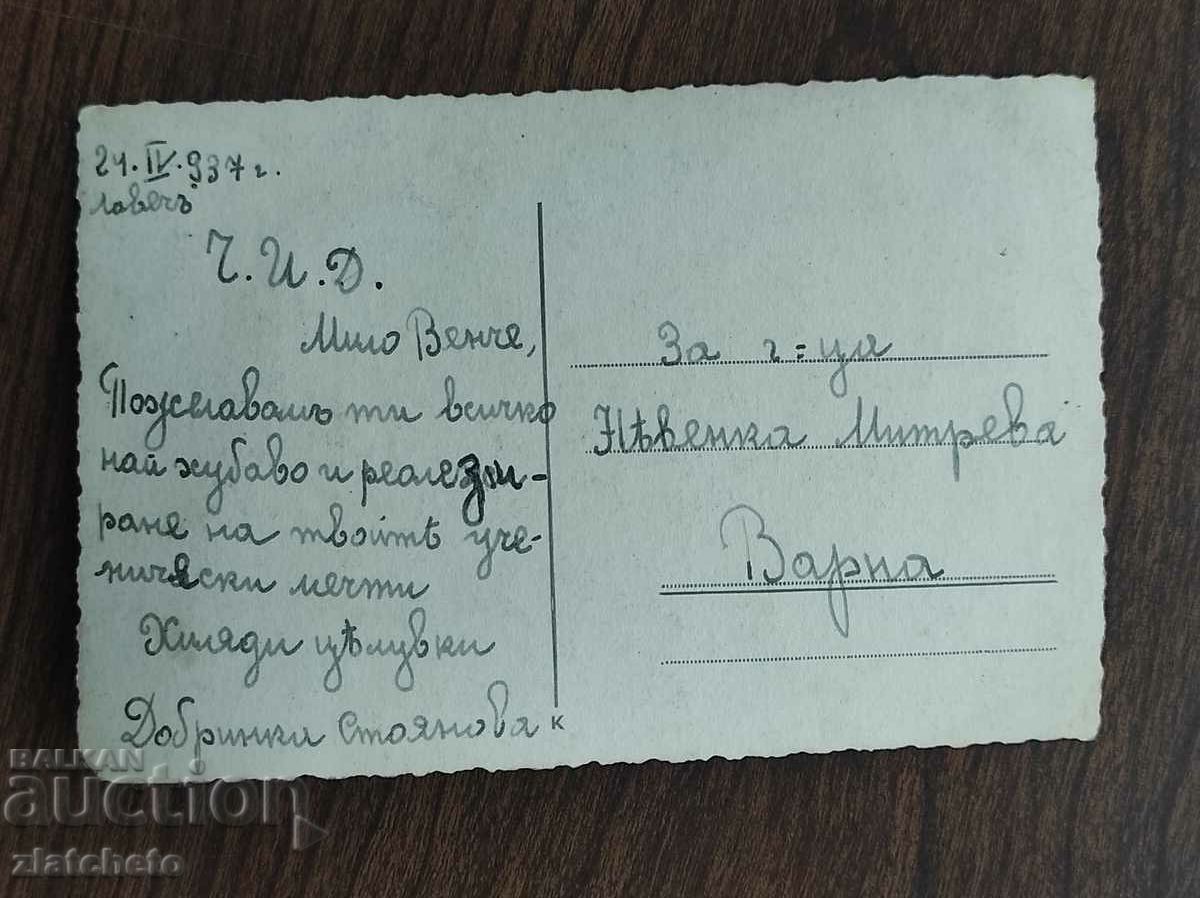 21.IV.937 г.
Ловечъ
Ч.И.Д.
Мило Венче,
Пожелавамъ ти всичко
най хубаво и реалези-
ране на твоитѣ уче-
нически мечти
Хиляди цѣлувки
Добринка Стоянова
К
За г=ца
Нѣвенка Митрева
Варна
BALKAN
auction
zlatcheto